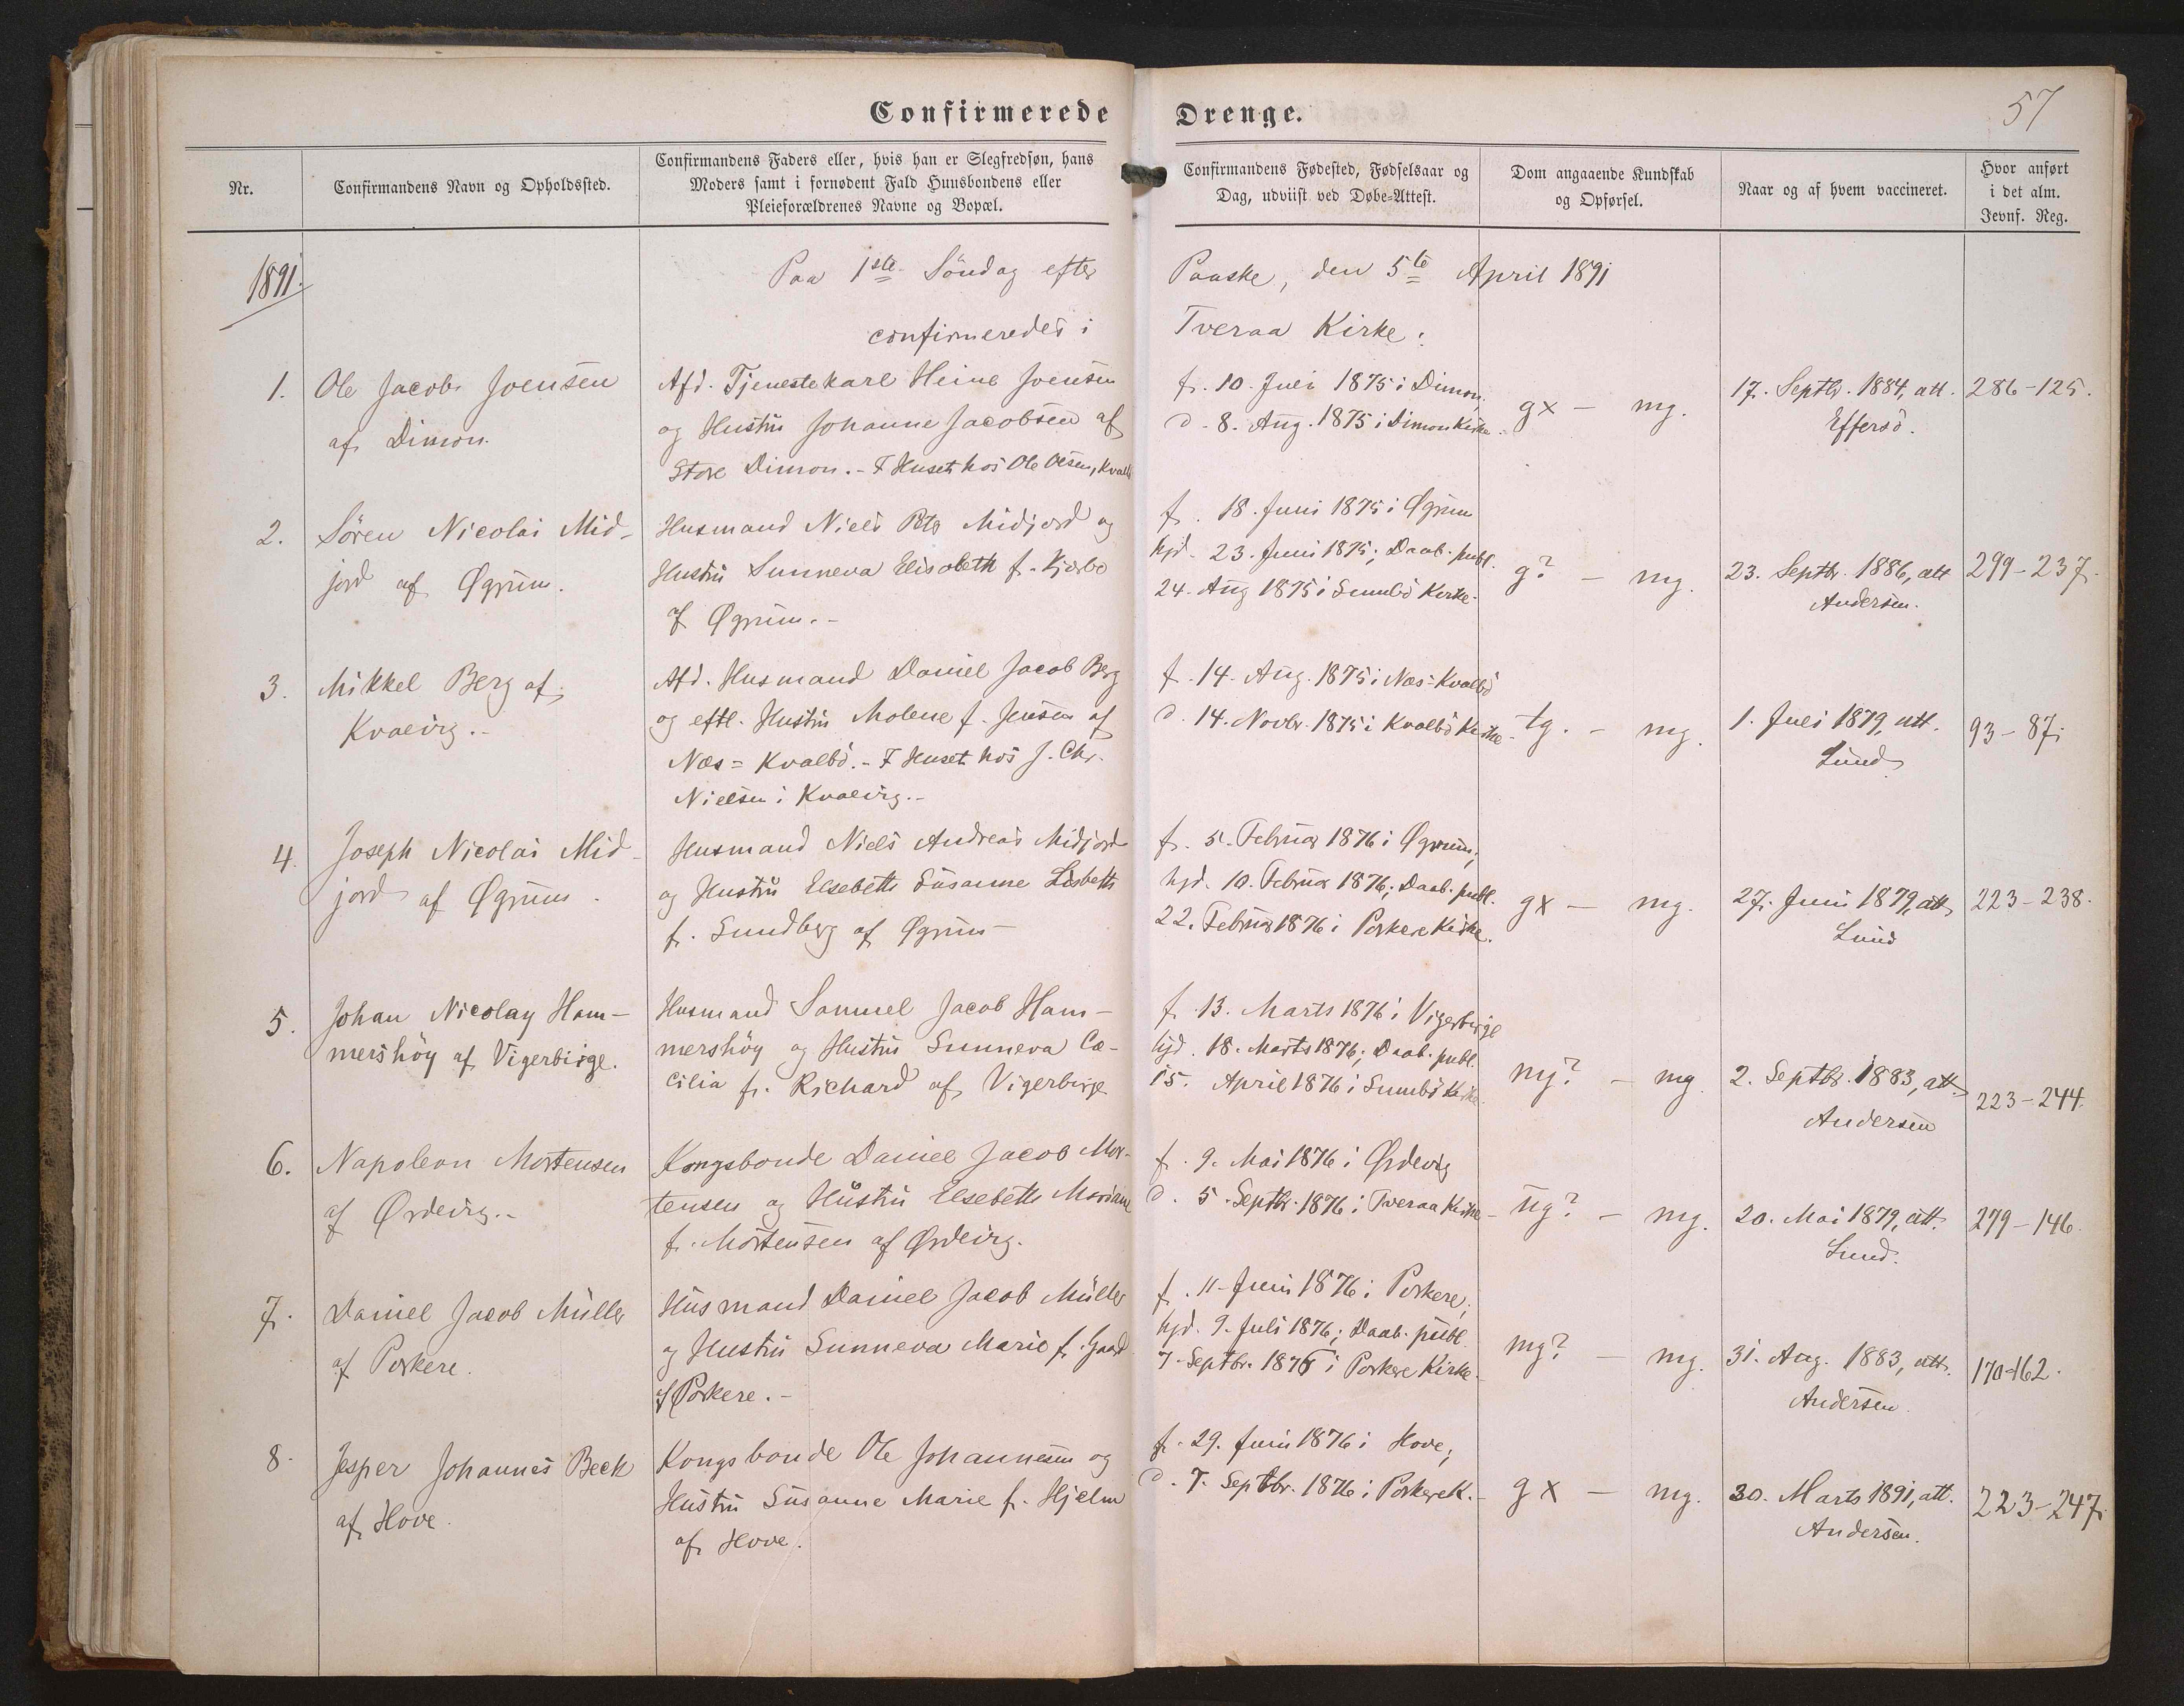 Confirmerede Drenge.
57
Nr.
Confirmandens Navn og Opholdssted.
Confirmandens Faders eller, hvis han er Slegfredsøn, hans
Moders samt i fornødent Fald Huusbondens eller
Pleieforældrenes Navne og Bopæl.
Confirmandens Fødested, Fødselsaar og
Dag, udviist ved Døbe-Attest.
Dom angaaende Kundskab
og Opførsel.
Naar og af hvem vaccineret.
Hvor anført
i det alm.
Jevnf. Reg.
1891.
Paa 1ste Söndag efter Paaske, den 5te April 1891
confirmeredes i Tveraa Kirke:
1.
Ole Jacob Joensen
af Dimon.
Afd. Tjenestekarl Heine Joensen
og Hustru Johanne Jacobsen af
Store Dimon. - I Huset hos Ole Olsen,
f. 10. Juli 1875 i Dimon,
d. 8. Aug. 1875 i Dimon Kirke.
gx - mg.
17. Septbr. 1884, att.
Effersö.
286-125.
2.
Sören Nicolai Mid-
jord af Øgrum.
Husmand Niels Ptr Midjord og
Hustru Sunneva Elisabeth f. Kjærbo
af Øgrum. -
f. 18. Juni 1875 i Øgrum
hjd. 23. Juni 1875; Daab. publ.
24. Aug 1875 i Sumbö Kirke.
g? - mg.
23. Septbr. 1886, att
Andersen.
299-237.
3.
Mikkel Berg af
Kvalvig. -
Afd. Husmand Daniel Jacob Berg
og eftl. Hustru Malene f. Jensen af
Næs = Kvalbö. - I Huset hos J. Chr.
Nielsen i Kvalvig. -
f. 14. Aug. 1875 i Næs-Kvalbö
d. 14. Novbr. 1875 i Kvalbö Kirke
tg. - mg.
1. Juli 1879, att.
Lund
93-87.
4.
Joseph Nicolai Mid-
jord af Øgrum.
Husmand Niels Andreas Midjord
og Hustru Elsebeth Susanne Lisbeth
f. Sundberg af Øgrum -
f. 5. Februar 1876 i Øgrum;
hjd. 10. Februar 1876; Daab. publ.
22. Februar 1876 i Porkere Kirke.
gx - mg.
27. Juni 1879, att
Lund
223-238.
5.
Johan Nicolay Ham-
mershöy af Vigerbirge.
Husmand Samuel Jacob Ham-
mershöy og Hustru Sunneva Cæ-
cilia f. Richard af Vigerbirge
f. 13. Marts 1876 i Vigerbirge
hjd. 18. Marts 1876; Daab. publ.
15. April 1876 i Sumbö Kirke.
mg? - mg
2. Septbr. 1883, att.
Andersen
223-244.
6.
Napoleon Mortensen
af Ørdevig. -
Kongsbonde Daniel Jacob Mor-
tensen og Hustru Elsebeth Mariane
f. Mortensen af Ørdevig.
f. 9. Mai 1876 i Ørdevig
d. 5. Septbr. 1876 i Tveraa Kirke
ug? - mg.
20. Mai 1879, att.
Lund.
279-146.
7.
Daniel Jacob Müller
af Porkere.
Husmand Daniel Jacob Müller
og Hustru Sunneva Marie f. Gaard
af Porkere. -
f. 11. Juni 1876 i Porkere;
hjd. 9. Juli 1876; Daab. publ
7. Septbr. 1876 i Porkere Kirke.
mg? - mg.
31. Aug. 1883, att.
Andersen.
170-162.
8.
Jesper Johannes Beck
af Hove.
Kongsbonde Ole Johannesen og
Hustru Susanne Marie f. Hjelm
af Hove.
f. 29. Juni 1876 i Hove;
d. 7. Septbr. 1876 i Porkere K. -
gx - mg.
30. Marts 1891, att.
Andersen.
223-247.